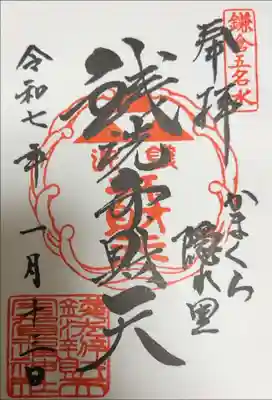 鎌倉五名水
奉拝
かまくら
隠れ里
銭洗弁財天
令和七年一月十三日